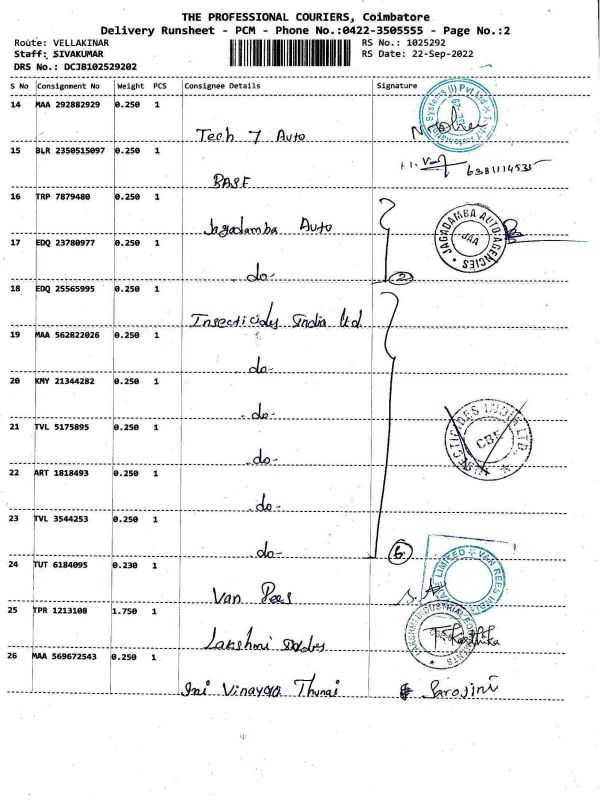 THE PROFESSIONAL COURIERS, Coimbatore
Delivery Runsheet - PCM - Phone No.:0422-3505555 - Page No.:2
Route: VELLAKINAR RS No.: 1025292
Staff: SIVAKUMAR RS Date: 22-Sep-2022
DRS No.: DCJB102529202
S No Consignment No Weight PCS Consignee Details Signature
14 MAA 292882929 0.250 1
Tech 7 Auto
15 BLR 2350515097 0.250 1
BASF 6381114535
16 TRP 7879480 0.250 1
Jagadamba Auto
JAGADAMBA AUTO AGENCIES
JAA
17 EDQ 23780977 0.250 1
-do- 2
18 EDQ 25565995 0.250 1
Insecticides India Ltd
19 MAA 562822026 0.250 1
-do-
20 KMY 21344282 0.250 1
-do-
21 TVL 5175895 0.250 1
-do-
INSECTICIDES INDIA LTD.
CBE
22 ART 1818493 0.250 1
-do-
23 TVL 3544253 0.250 1
-do- 6
24 TUT 6184095 0.230 1
Van Rees
25 TPR 1213108 1.750 1
Lakshmi
26 MAA 569672543 0.250 1
Vinayaga Thunai Sarojini